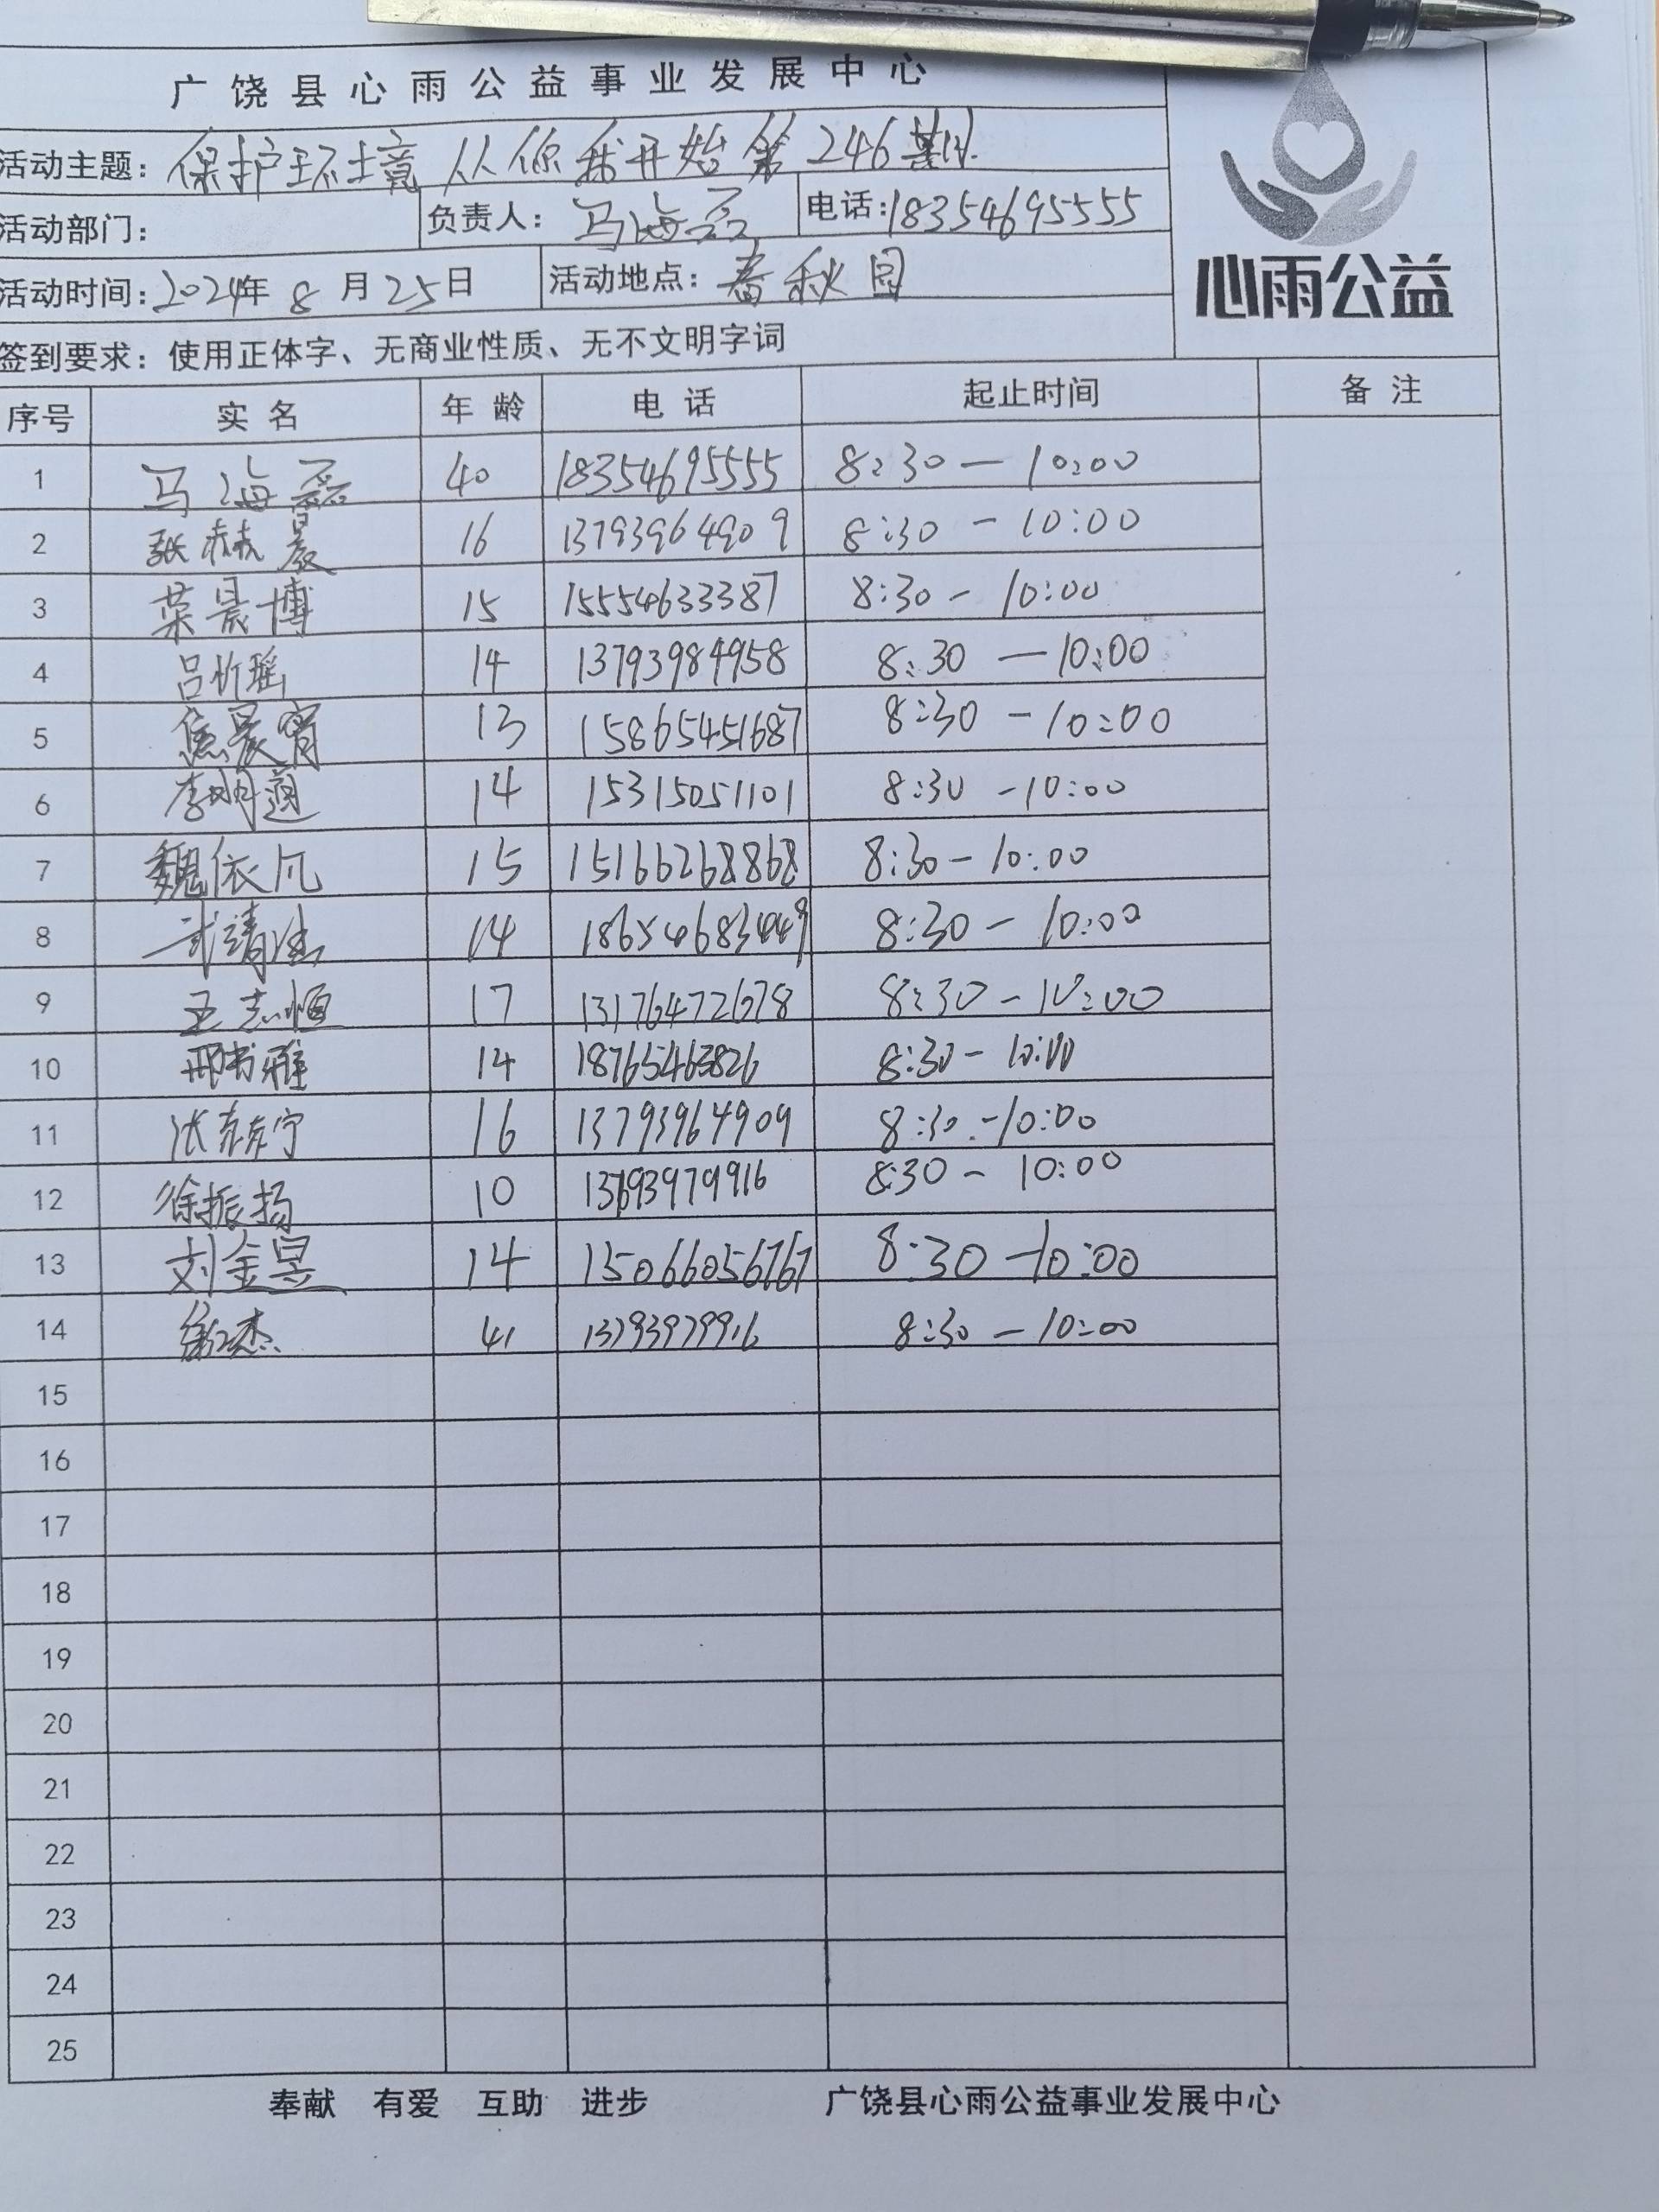 广饶县心雨公益事业发展中心
活动主题: 保护环境 从你我开始第246期
活动部门: 负责人: 马海磊 电话:18354695555
活动时间:2024年 8 月 25日 活动地点: 春秋园
心雨公益
签到要求: 使用正体字、无商业性质、无不文明字词
序号 实 名 年 龄 电 话 起止时间 备 注
1 马海磊 40 18354695555 8:30 — 10:00
2 张赫晨 16 13793964909 8:30 - 10:00
3 荣晨博 15 15554633387 8:30 - 10:00
4 吕忻瑶 14 13793984958 8:30 — 10:00
5 焦晨宵 13 15865451687 8:30 - 10:00
6 李明 14 15315051101 8:30 - 10:00
7 魏依凡 15 15166268868 8:30 - 10:00
8 武靖 14 18654683449 8:30 - 10:00
9 王志恒 17 13176472678 8:30 - 10:00
10 邢书雅 14 18765463826 8:30 - 10:00
11 张赫宁 16 13793964909 8:30 - 10:00
12 徐振扬 10 13793979916 8:30 - 10:00
13 刘金昱 14 15066056767 8:30 - 10:00
14 杰 41 13793979916 8:30 - 10:00
15
16
17
18
19
20
21
22
23
24
25
奉献 有爱 互助 进步 广饶县心雨公益事业发展中心